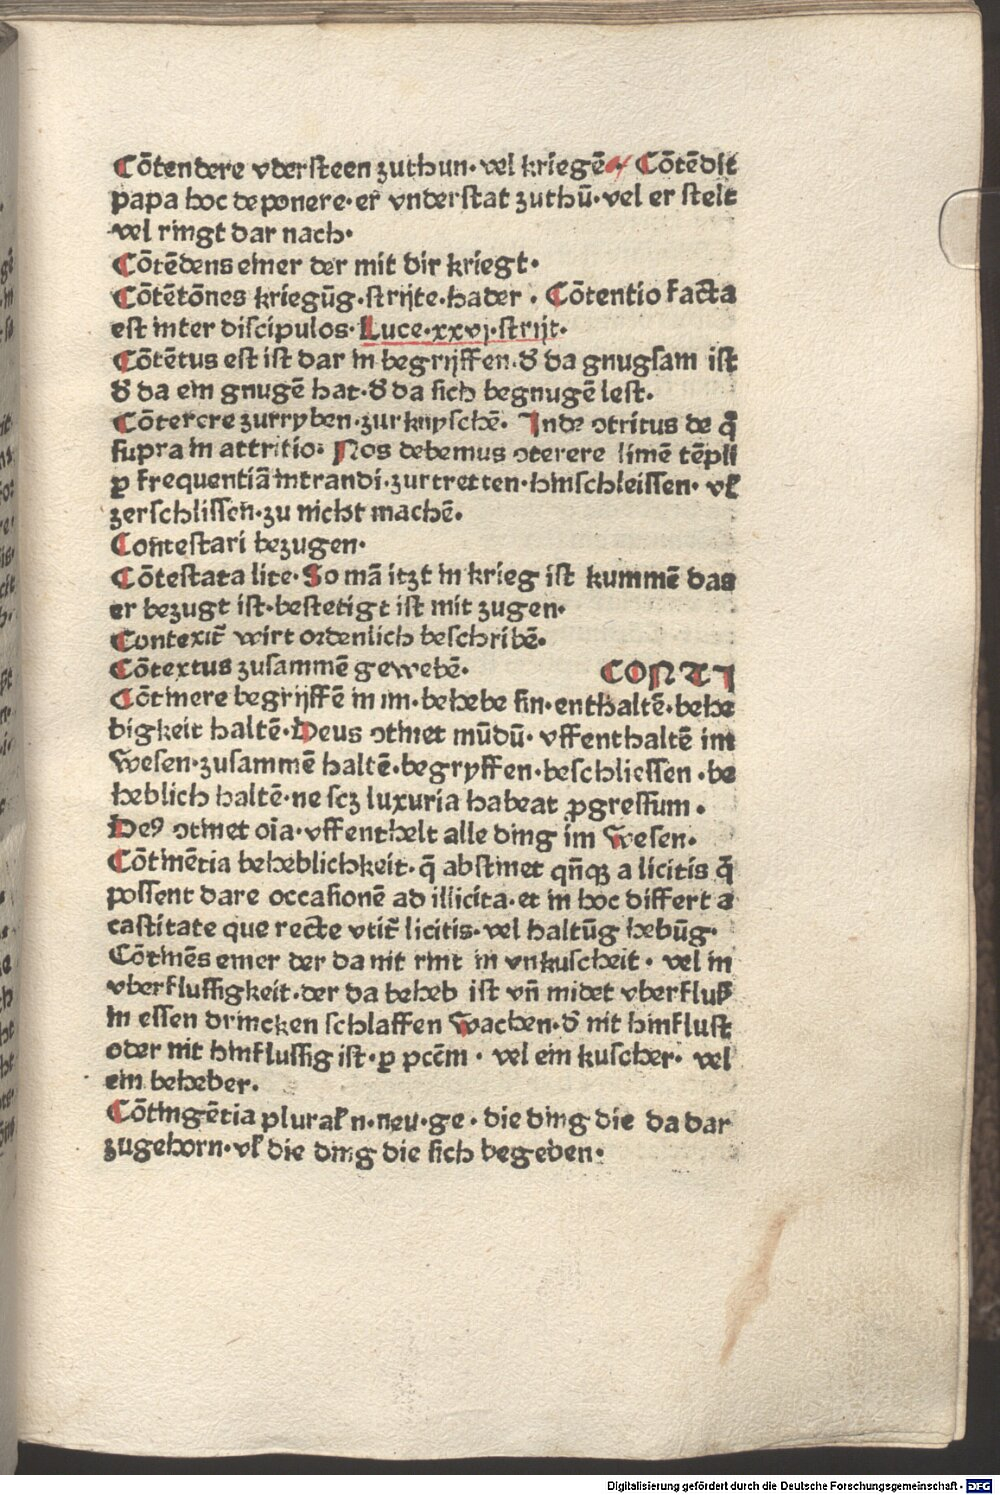 Cōtendere vdersteen zuthun· vel kriegē· Cōtēdit
papa hoc deponere· er vnderstat zuthū· vel er stelt
vel ringt dar nach·
Cōtēdens einer der mit dir kriegt·
Cōtētōnes kriegūg· strijte· hader · Cōtentio facta
est inter discipulos· Luce· xxvj· strijt·
Cōtētus est ist dar in begrijffen· đ da gnugsam ist
đ da ein gnugē hat· đ da sich begnugē lest·
Cōterere zurryben· zurknyschē· Inde ↄtritus de q̄
supra in attritio· Nos debemus ↄterere limē tēpli
ꝑ frequentiā intrandi· zurtretten· hinschleissen· vł
zerschlissen· zu nicht machē·
Contestari bezugen·
Cōtestata lite· So mā itzt in krieg ist kummē das
er bezugt ist· bestetigt ist mit zugen·
Contexit᷑ wirt ordenlich beschribē·
Cōtextus zusammē gewebē· CONTI
Cōtinere begrijffē in im· behebe sin· enthaltē· behe
bigkeit haltē· Deus ↄtinet mūdū· vffenthaltē im
wesen· zusammē haltē· begryffen· beschliessen · be
heblich haltē· ne scꝫ luxuria habeat ꝓgressum ·
Deꝰ ↄtinet oīa· vffenthelt alle ding im wesen·
Cōtinētia beheblichkeit· q̄ abstinet qn̄qꝫ a licitis q̄
possent dare occasionē ad illicita· et in hoc differt a
castitate que recte vtit᷑ licitis· vel haltūg hebūg·
Cōtinēs einer der da nit rint in vnkuscheit · vel in
vberflussigkeit· der da beheb ist vn̄ midet vberfluß
in essen drincken schlaffen wachen· đ nit hinflust
oder nit hinflussig ist· ꝑ pcēm · vel ein kuscher· vel
ein beheber·
Cōtingētia plurał n· neu· ge · die ding die da dar
zugehorn· vł die ding die sich begeben·
Digitalisierung gefördert durch die Deutsche Forschungsgemeinschaft - DFG